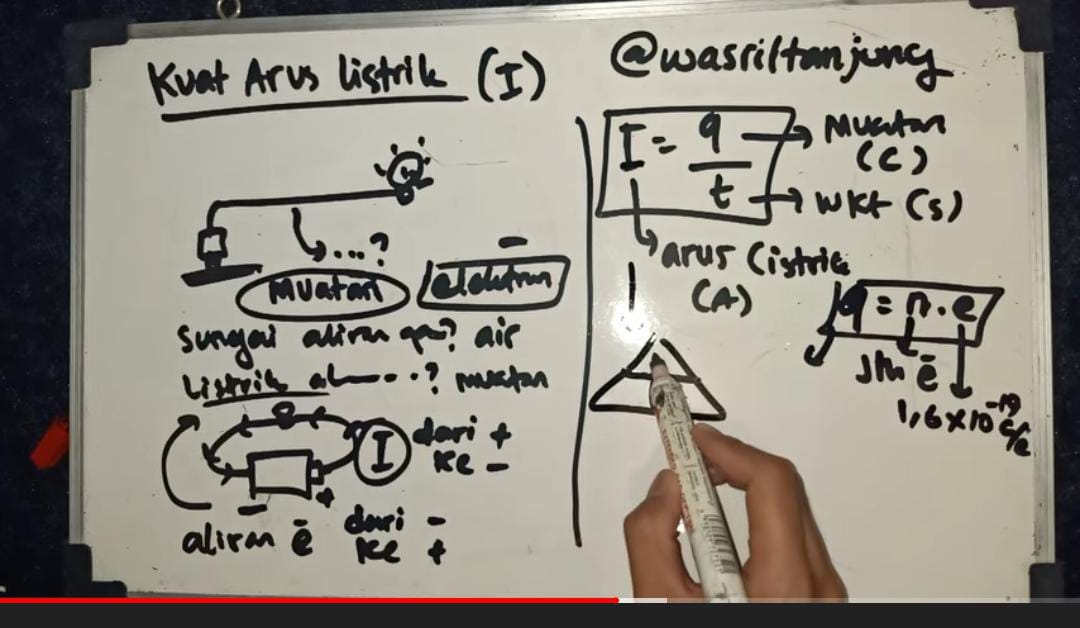 Kuat Arus listrik (I)
...?
Muatan
-
elektron
sungai aliran apa? air
Listrik al---..? muatan
I
dari +
ke -
-
+
aliran ē
dari -
ke +
@wasriltanjung
I = q/t
Muatan
(C)
wkt (s)
arus listrik
(A)
q = n.e
Jlh ē
1,6 x 10⁻¹⁹ C/e